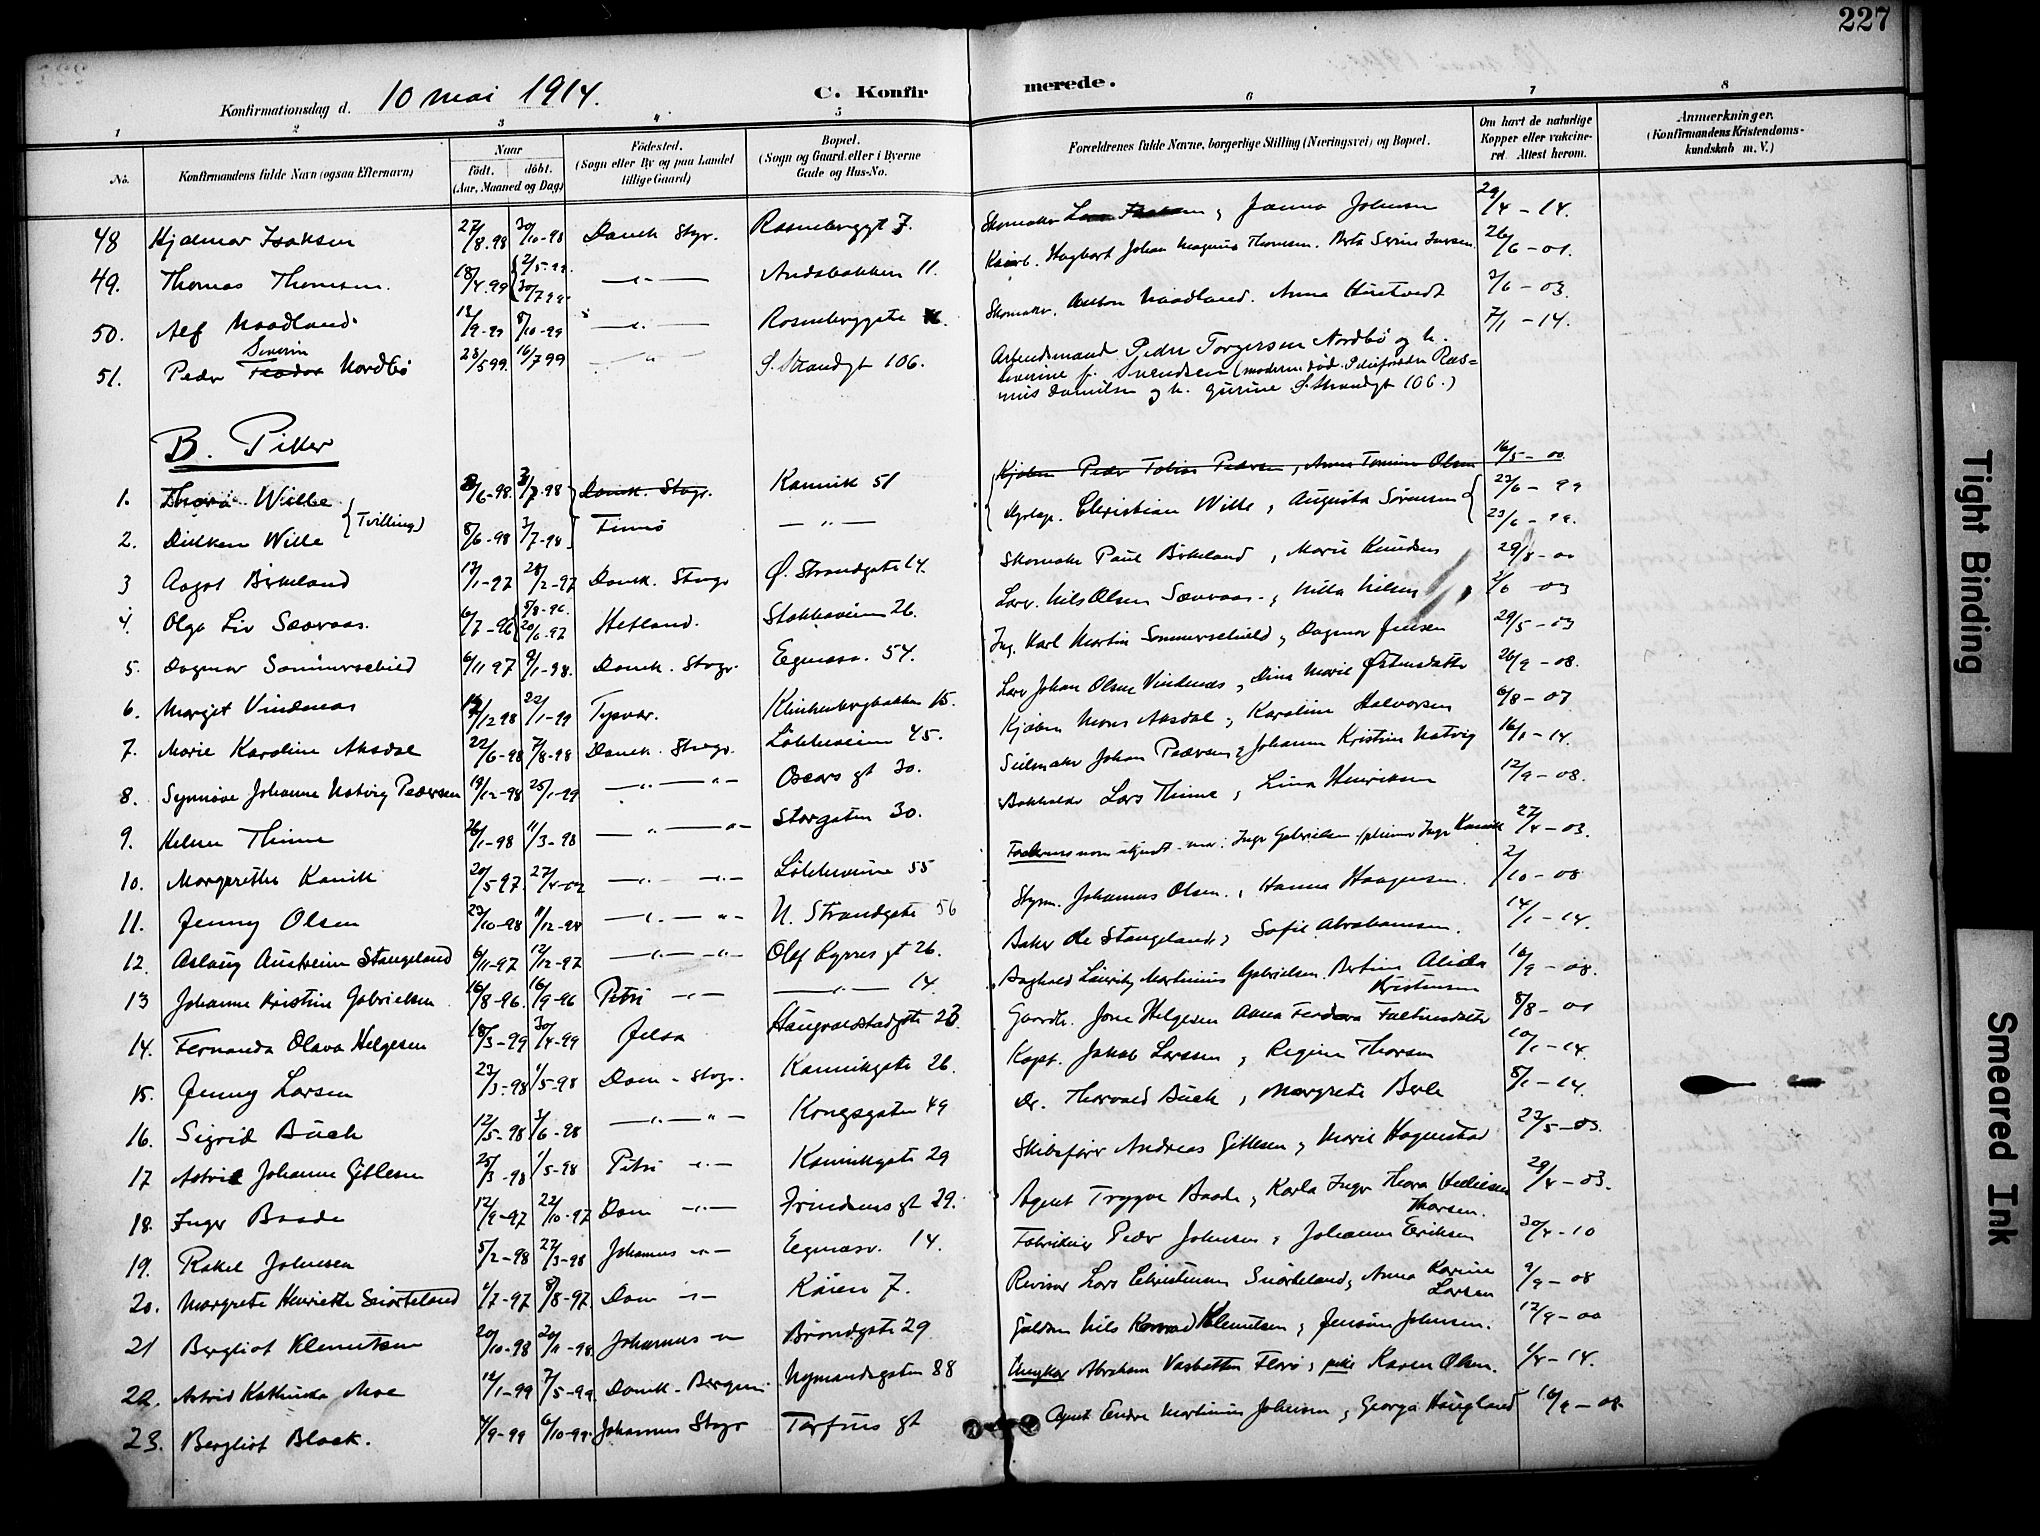 227
Konfirmationsdag d. 10 mai 1914.
C. Konfirmerede.
1 2 3 4 5 6 7 8
No. Konfirmandens fulde Navn (ogsaa Efternavn) Naar født. døbt. (Aar, Maaned og Dag) Fødested. (Sogn eller By og paa Landet tillige Gaard) Bopæl. (Sogn og Gaard eller i Byerne Gade og Hus-No. Forældrenes fulde Navne, borgerlige Stilling (Næringsvei) og Bopæl. Om havt de naturlige Kopper eller vakcineret. Attest herom. Anmærkninger. (Konfirmandens Kristendomskundskab m. V.)
48 Hjalmar Isaksen 27/8.98 30/10-98 Domk. Stgr. Rosenberggt 7. Skomaker , Janna Johnsen 29/4-14.
49. Thomas Thomsen. 18/4.99 2/5-99 30/7 99 —"— Andabakken 11. Hagbart Johan Magnus Thomsen. Berta Serine Iversen 26/6-01.
50. Alf Naadland. 8/10-99 —"— Rosenberggate Skomaker. Anton Naadland. Anna 2/6-03.
51. Peder Severin Nordbø 28/5 99 16/7 99 —"— S. Strandgt 106. Arbeidsmand Peder Torgersen Nordbø og h. Severine f. Svendsen (moderen død. Pleieforældre Rasmus Danielsen og h. Gurine S. Strandgt 106.) 7/1-14.
B. Piker
1. Thora Wille 8/6-98. 3/7-98 Domk. Stgr. Kannik 51 Kjøbm Peder Tobias Pedersen, Anna Tomine Olsen 16/5-00
(Tvilling)
2. Didken Wille 8/6-98 3/7-98 Finnø —"— Dyrlæge. Christian Wille, Augusta Sørensen 23/6-99 23/6-99.
3 Aagot Birkeland 28/2-97 Domk. Stvgr Ø. Strandgate 14. Skomaker Paul Birkeland, Marie Knudsen 29/8-00
4. Olga Liv Sævraas. 6/7-96 5/8-96. 20/6-97 Hetland. Stokkaveien 26. Lærer. Nils Olsen Sævraas, Milla Nilsen 2/6 03
5. Dagmar Sommerschild 6/11 97 9/1-98. Domk. Stvgr. Egenæsv. 54. Ing. Karl Martin Sommerschield, Dagmar Jensen 29/5-03
6. Margit Vindenas 12 98 22/1-99 Tysvær. Klinkenbergbakken 15. Lærer Johan Olsen Vindenæs, Dina Marie Østensdatter 26/9-08.
7. Marie Karoline Aksdal 22/6-98 7/8-98 Domk. Stvgr. Løkkeveien 45. Kjøbm Mons Aksdal, Karoline Halvorsen 6/8-07
8. Synnøve Johanne Natvig Pedersen 19/12-98 25/1-99 —"— Oscars gt 30. Seilmaker Johan Pedersen, Johanne Kristine Natvig 16/1-14.
9. Helene Thime 26/1-98 11/3-98 —"— Storgaten 30. Bokholder Lars Thime, Lina Henriksen 12/9-08.
10. Margarethe Kanik 20/5 97. 27/4-02 —"— Løkkeveien 55 Faderens navn ukjendt - mor: Inger Gabrielsen Inger Kanik 27/4-03.
11. Jenny Olsen 23/10-98 11/12-98 —"— N. Strandgate 56 Styrm. Johannes Olsen., Hanna Haagensen. 2/10-08
12. Aslaug Austreim Stangeland 6/11-97 12/12-97 —"— Olaf Kyrres gt 26. Baker Ole Stangeland, Sofie Abrahamsen. 14/1-14.
13 Johanne Kristine Gabrielsen 16/8-96. 16/9-96 Petri —"— —"— 14. Lauritz Martinius Gabrielsen. Bertine Alida Kristensen 16/9-08.
14. Fernanda Olava Helgesen 18/3-99 30/4-99 Jelsa Haugvaldstadgate 23. Gaardbr. Jone Helgesen Anna 8/8-01
15. Jenny Larsen 23/3-98 1/5-98 Dom - Stvgr. Kannikgate 26. Kapt. Jakob Larsen, Regine Thorsen 10/1-14.
16. Sigrid Buch 12/5-98 3/6-98 —"— Kongsgaten 49 Dr. Thorvald Buch, Margrete Berle 8/1-14.
17 Astrid Johanne Gillesen 25/3-98 1/5-98 Petri —"— Kannikgate 29 Skibsfører Andreas Gillesen, Marie Hagenstad 23/5-03
18. Inger Baade 12/9-97 22/10-97 Dom —"— gt 29. Agent Trygve Baade, Karla Inger Thora Thorsen. 29/4-03.
19. Rakel Johnsen 5/2-98 27/3-98 Johannes —"— Egenæsv. 14. Fabrikeier Peder Johnsen, Johanne Eriksen 30/4-10
20. Margrete Henriette Snørteland 4/7-97 8/8-97. Dom —"— Kaien 7. Revisor Lars Christensen Snørteland, Anna Karine Larsen 9/9-08
21 Bergliot Klemetsen 20/10-98 20/11-98. Johannes —"— Brøndgate 29 Guldsm Nils Konrad Klemetsen, Jensine Johnsen. 12/9-00
22. Astrid Kathinka Moe 12/1-99 7/5-99 Domk-Bergen. Nymandsgaten 88 Ungkar Abraham Vasbotten Florø, pike Karen Olsen. 1/4-14.
23. Bergliot Block. 4/9-99 6/10-99. Johannes Stvgr Torfæus gt Agent Endre Martinius Johnsen, Georga Haugland 16/9-08.
Tight Binding
Smeared Ink